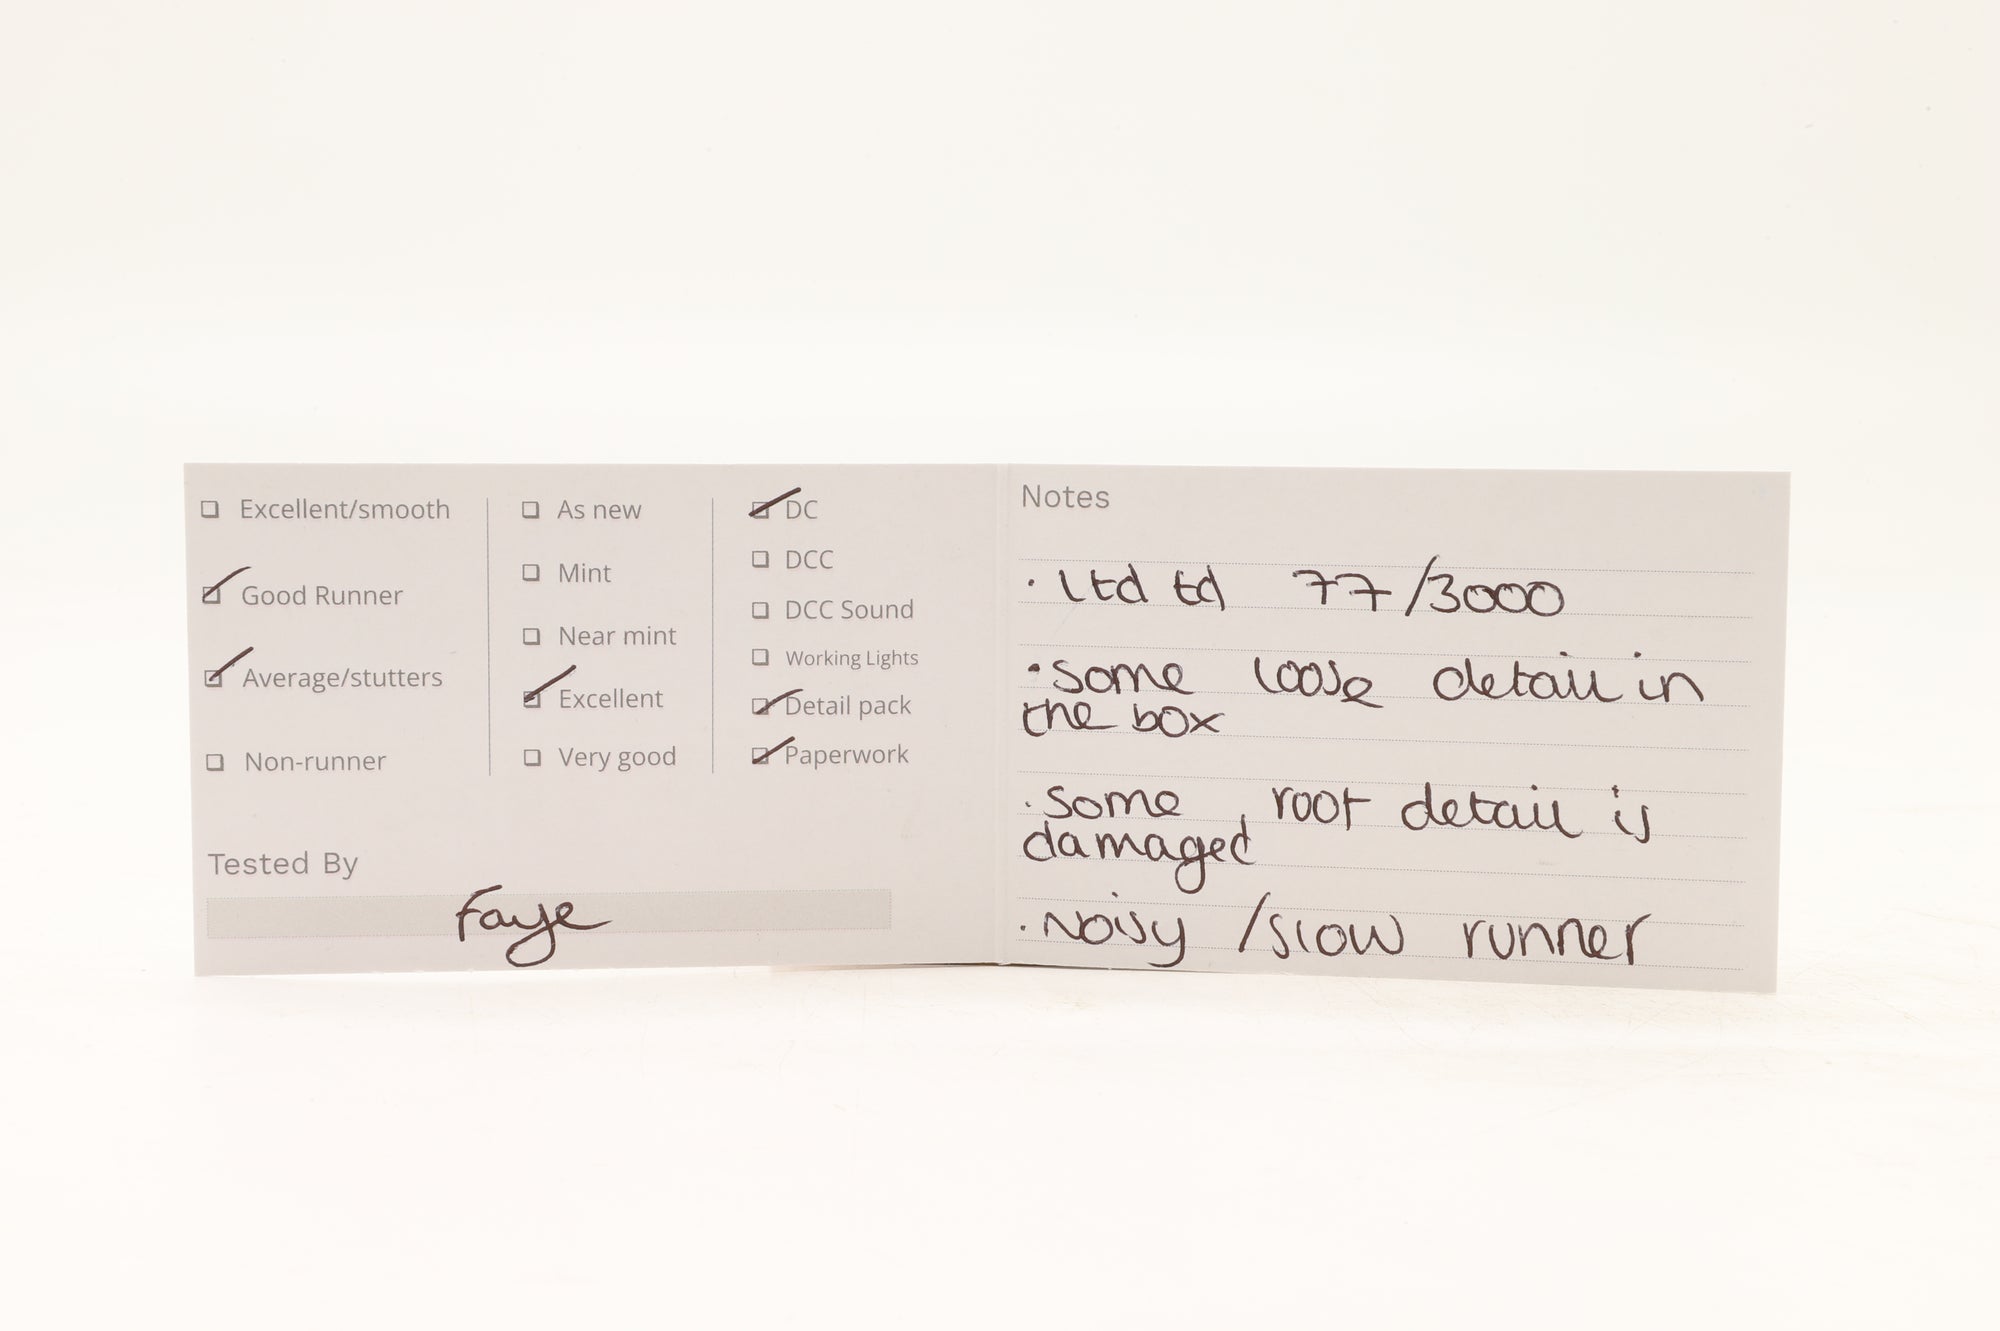 Excellent/smooth
Good Runner
Average/stutters
Non-runner
As new
Mint
Near mint
Excellent
Very good
DC
DCC
DCC Sound
Working Lights
Detail pack
Paperwork
Tested By
Faye
Notes
· Ltd td 77/3000
· Some loose detail in
the box
· Some roof detail is
damaged
· Noisy /slow runner